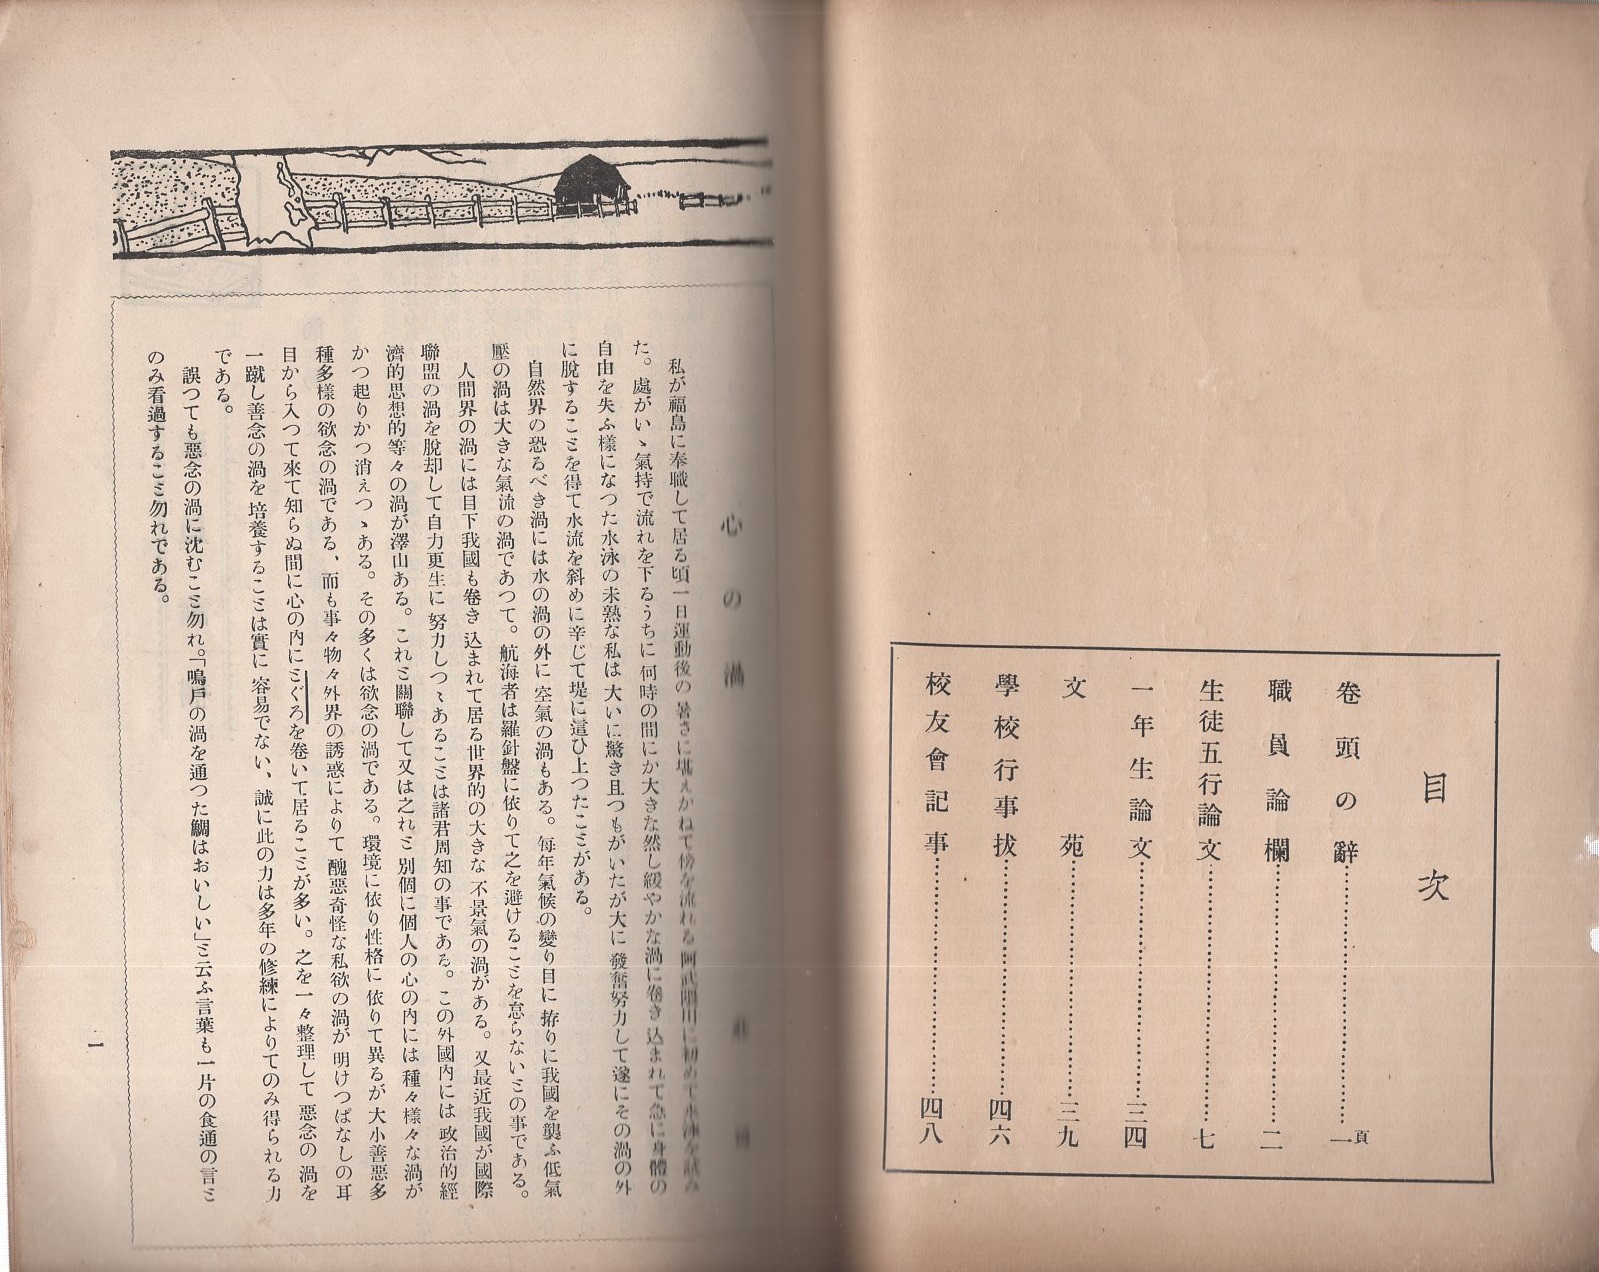 目次
卷頭の辭……一頁
職員論欄……二
生徒五行論文……七
一年生論文……三四
文苑……三九
學校行事抜……四六
校友會記事……四八
心の渦
私が福島に奉職して居る頃一日運動後の暑さに堪えかねて傍を流れる阿武隈川に初めて水泳を試み
た。處がいゝ氣持で流れを下るうちに何時の間にか大きな然し緩やかな渦に卷き込まれて急に身體の
自由を失ふ樣になつた水泳の未熟な私は大いに驚き且つもがいたが大に發奮努力して遂にその渦の外
に脫することを得て水流を斜めに辛じて堤に這ひ上つたことがある。
自然界の恐るべき渦には水の渦の外に空氣の渦もある。每年氣候の變り目に拵りに我國を襲ふ低氣
壓の渦は大きな氣流の渦であつて。航海者は羅針盤に依りて之を避けることを怠らないとの事である。
人間界の渦には目下我國も卷き込まれて居る世界的の大きな不景氣の渦がある。又最近我國が國際
聯盟の渦を脫却して自力更生に努力しつゝあることは諸君周知の事である。この外國內には政治的經
濟的思想的等々の渦が澤山ある。これと關聯して又は之れと別個に個人の心の內には種々樣々な渦が
かつ起りかつ消えつゝある。その多くは欲念の渦である。環境に依り性格に依りて異るが大小善惡多
種多樣の欲念の渦である、而も事々物々外界の誘惑によりて醜惡奇怪な私欲の渦が明けつぱなしの耳
目から入つて來て知らぬ間に心の內にとぐろを卷いて居ることが多い。之を一々整理して惡念の渦を
一蹴し善念の渦を培養することは實に容易でない、誠に此の力は多年の修練によりてのみ得られる力
である。
誤つても惡念の渦に沈むこと勿れ。「鳴戶の渦を通つた鯛はおいしい」と云ふ言葉も一片の食通の言と
のみ看過すること勿れである。
一